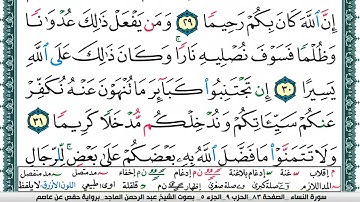 إِنَّ ٱللَّهَ كَانَ بِكُمْ رَحِيمًا ٢٩ وَمَن يَفْعَلْ ذَٰلِكَ عُدْوَٰنًا
وَظُلْمًا فَسَوْفَ نُصْلِيهِ نَارًا ۚ وَكَانَ ذَٰلِكَ عَلَى ٱللَّهِ
يَسِيرًا ٣٠ إِن تَجْتَنِبُوا۟ كَبَآئِرَ مَا تُنْهَوْنَ عَنْهُ نُكَفِّرْ
عَنكُمْ سَيِّـَٔاتِكُمْ وَنُدْخِلْكُم مُّدْخَلًا كَرِيمًا ٣١
وَلَا تَتَمَنَّوْا۟ مَا فَضَّلَ ٱللَّهُ بِهِۦ بَعْضَكُمْ عَلَىٰ بَعْضٍ ۚ لِّلرِّجَالِ
سورة النساء . الصفحة ٨٣ . الجزء ٥ . بصوت الشيخ عبد الرحمن الماجد . برواية حفص عن عاصم